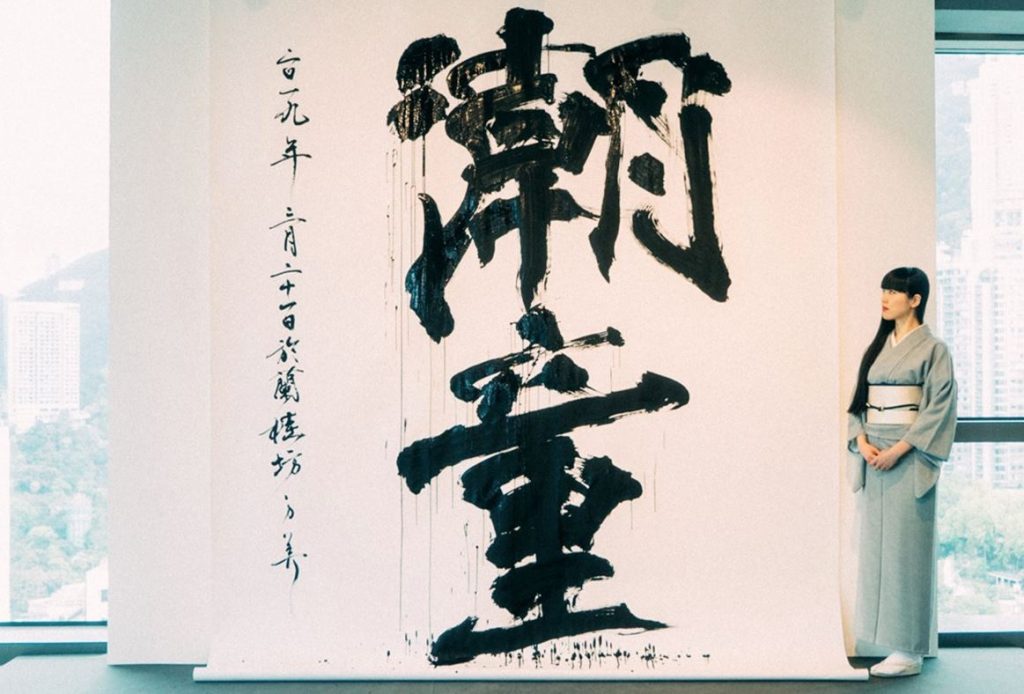 潮童
二〇一九年 三月二十一日於蘭桂坊 万美